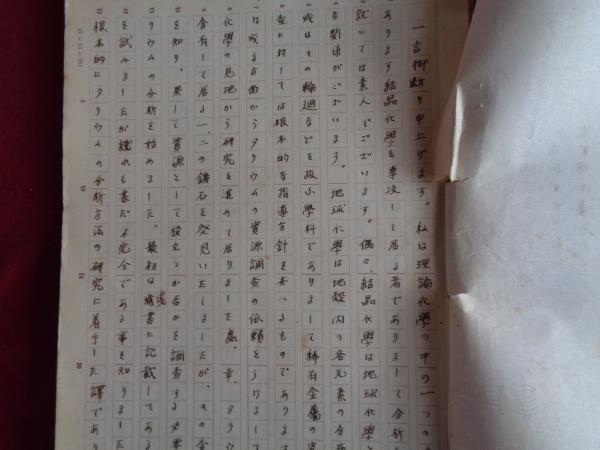 一言御断り申上げます。私は理論化學の中の一つの
あります結晶化學を専攻して居る者でありまして分析
就いては素人でございます。偶々、結晶化學は地球化學と
な関係がございます。地球化學は地殻内の各元素の分布
或はその輪廻などを救ふ學科でありまして稀有金属の資
査に対しては根本的な指導方針を与へるものであります
は或る方面からタリウムの資源調査の依頼をうけまして
化學の見地から研究を進めて居りました處、幸、タリウ
含有して居る一、二の鑛石を発見いたしましたが、その含
を知り、果して資源として役立つか否かを調査する必要
リウムの分析を始めました。最初は成書に記載してある
を試みましたが孰れも甚だ不完全である事を知りました
根本的にタリウムの分析方法の研究に着手した譯であり